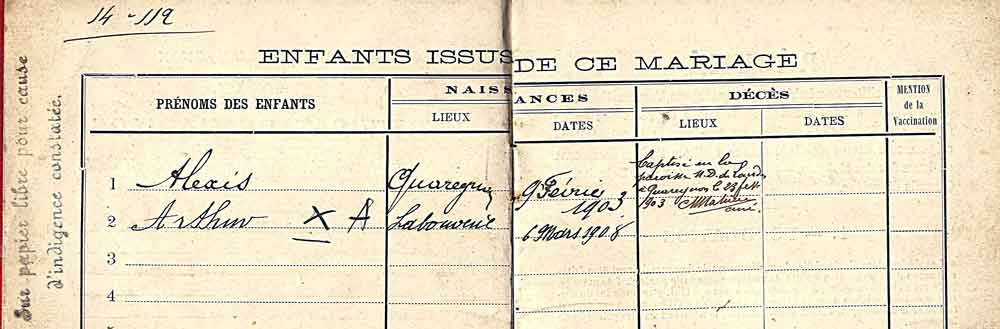 14 - 119
Sur papier libre pour cause
d'indigence constatée.
ENFANTS ISSUS DE CE MARIAGE
PRÉNOMS DES ENFANTS
NAISSANCES
DÉCÈS
MENTION
de la
Vaccination
LIEUX
DATES
LIEUX
DATES
1 Alexis Quaregnon 9 Février 1903
Baptisé en la
paroisse N.D. de Lourdes
à Quaregnon le 23
1903
curé.
2 Arthur X A 6 Mars 1908
3
4